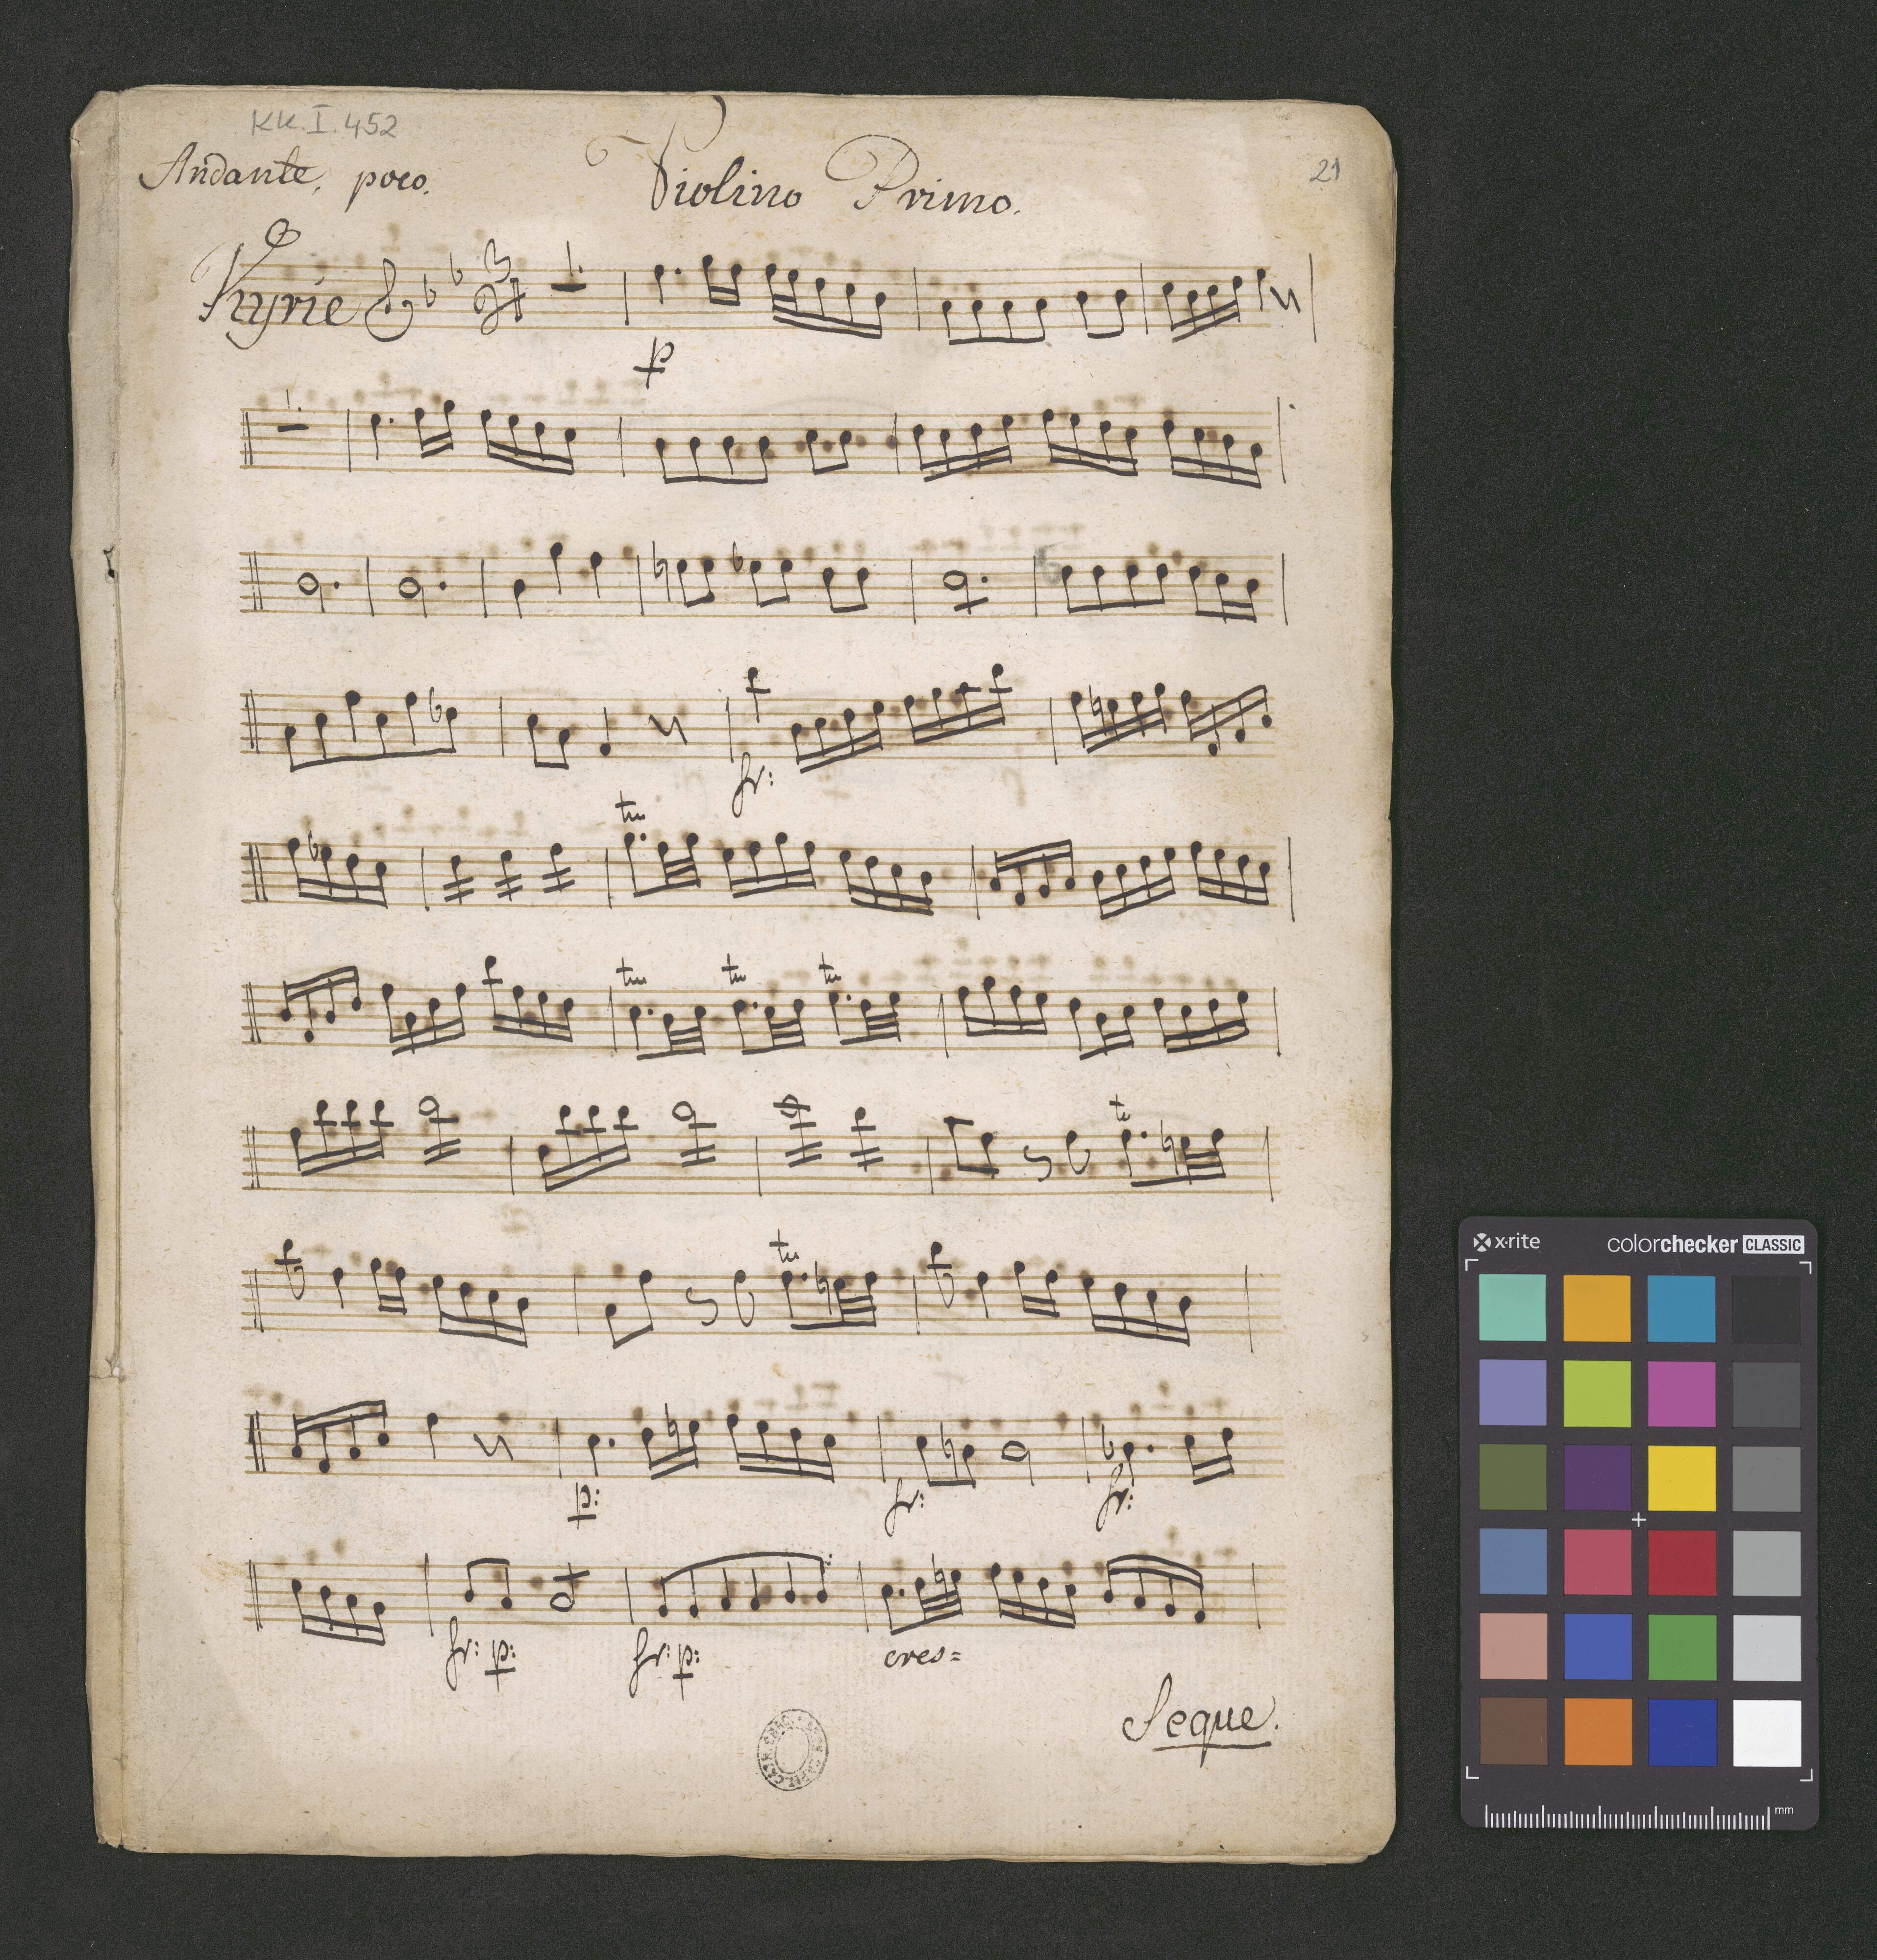 KK. I. 452
Andante, poco.
Violino Primo.
21
Kyrie
1.
p
1.
fr:
tr
tr tr tr
tr
tr
p: fr: fr:
fr: p: fr: p: cres=
Seque.
x·rite colorchecker CLASSIC
mm